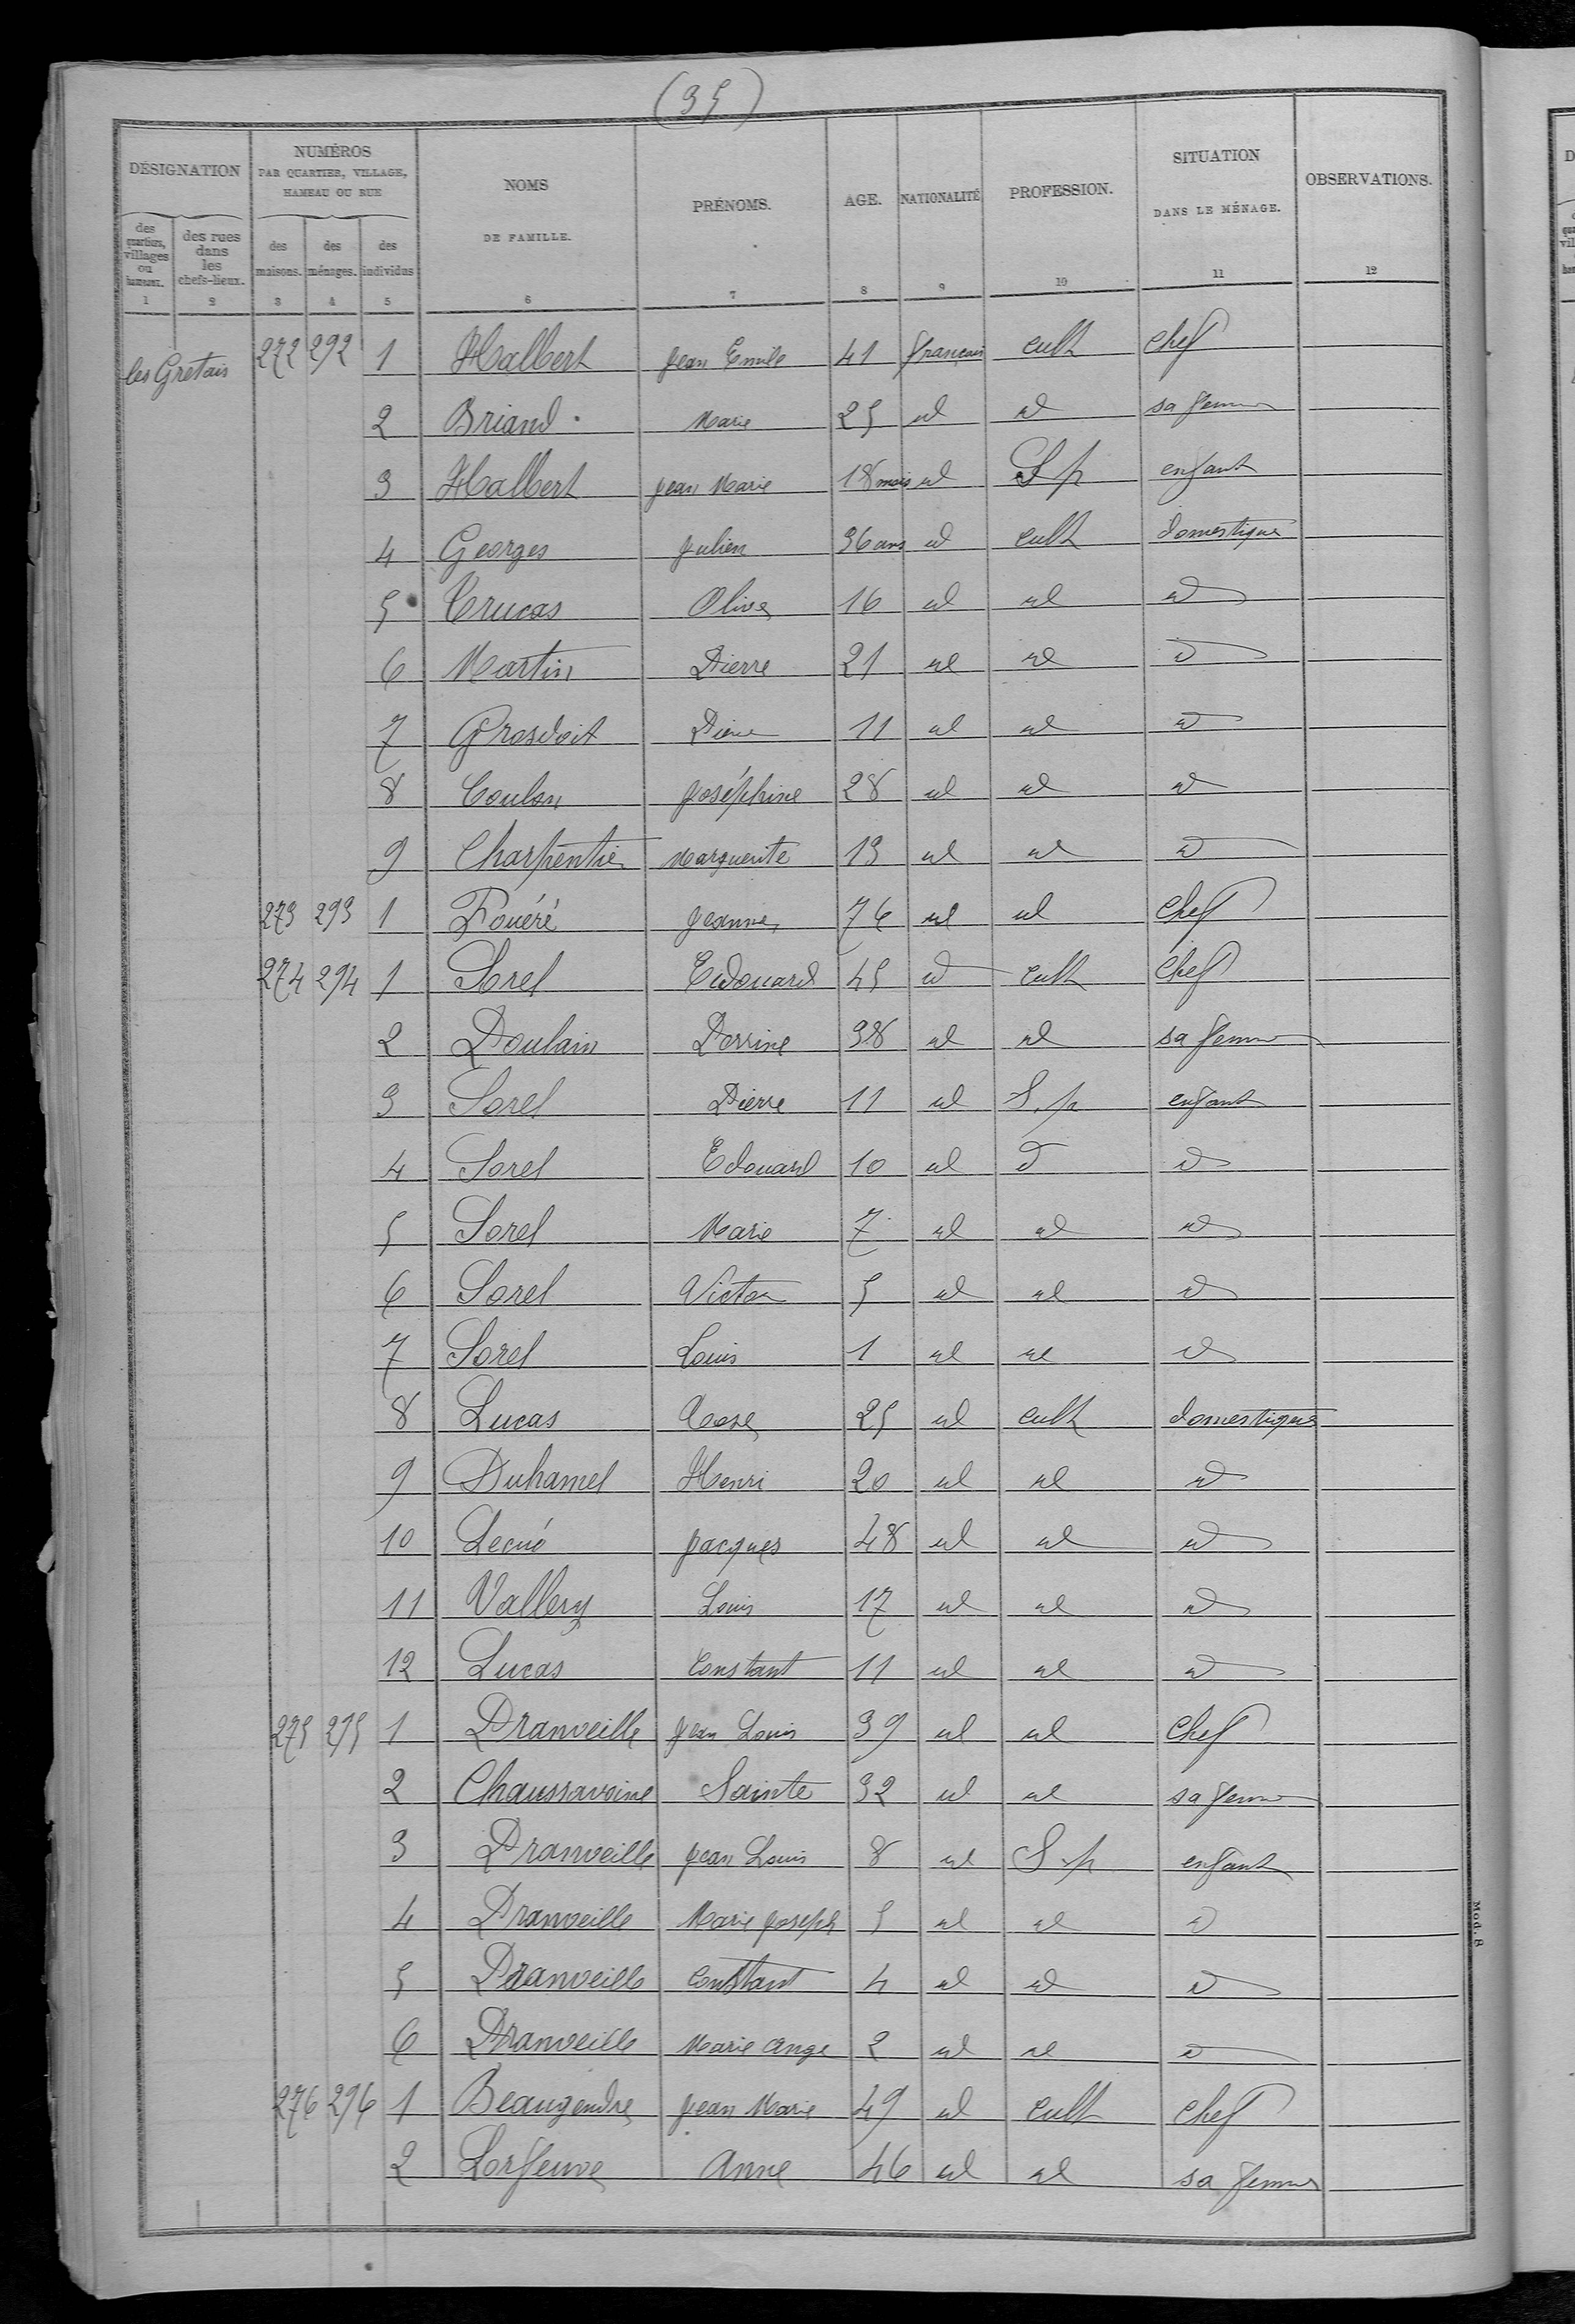 (35)
DÉSIGNATION
NUMÉROS
PAR QUARTIER, VILLAGE,
HAMEAU OU RUE
NOMS
DE FAMILLE.
PRÉNOMS.
AGE.
NATIONALITÉ
PROFESSION.
SITUATION
DANS LE MÉNAGE.
OBSERVATIONS.
des quartiers, villages ou hameaux.
des rues dans les chefs-lieux.
des maisons.
des ménages.
des individus
1 2 3 4 5 6 7 8 9 10 11 12
les Gretais 272 292 1 Halbert Jean Emile 41 français cult chef
2 Briand Marie 25 id id sa femme
3 Halbert Jean Marie 18 mois id S p enfant
4 Georges Julien 36 ans id cult domestique
5 Crucas Olive 16 id id id
6 Martin Pierre 21 id id id
7 Grosdoit Pierre 11 id id id
8 Coulon Joséphine 28 id id id
9 Charpentier Marguerite 13 id id id
273 293 1 Fouéré Jeanne 76 id id chef
274 294 1 Sorel Edouard 45 id cult chef
2 Poulain Perrine 38 id id sa femme
3 Sorel Pierre 11 id S. p enfant
4 Sorel Edouard 10 id id id
5 Sorel Marie 7 id id id
6 Sorel Victor 5 id id id
7 Sorel Louis 1 id id id
8 Lucas Rose 25 id cult domestique
9 Duhamel Henri 20 id id id
10 Lecué Jacques 48 id id id
11 Vallery Louis 17 id id id
12 Lucas Constant 11 id id id
275 295 1 Dranveille Jean Louis 39 id id chef
2 Chaussavoine Sainte 32 id id sa femme
3 Dranveille Jean Louis 8 id S. p enfant
4 Dranveille Marie Joseph 5 id id id
5 Dranveille Constant 4 id id id
6 Dranveille Marie Ange 2 id id id
276 296 1 Beaugendre Jean Marie 49 id cult chef
2 Lorfeuve Anne 46 id id sa femme
Mod. 8